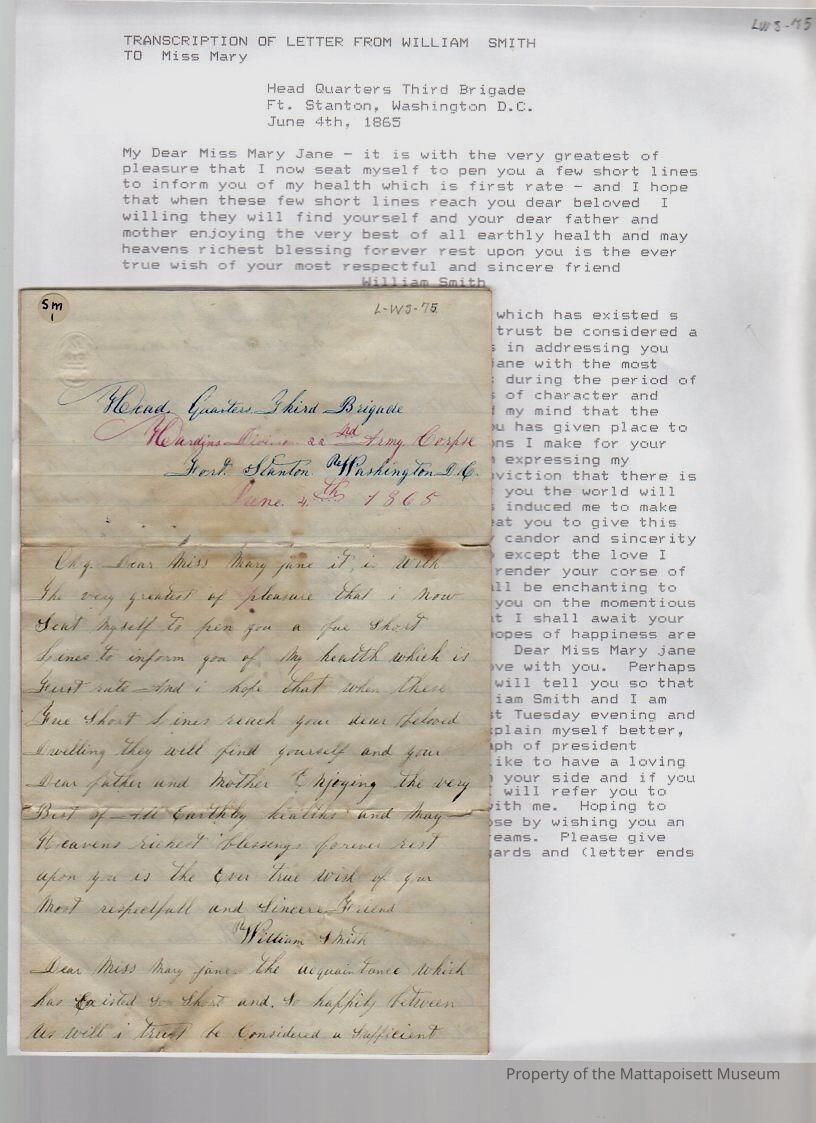 LWS-75
TRANSCRIPTION OF LETTER FROM WILLIAM SMITH
TO Miss Mary
Head Quarters Third Brigade
Ft. Stanton, Washington D.C.
June 4th, 1865
My Dear Miss Mary Jane - it is with the very greatest of
pleasure that I now seat myself to pen you a few short lines
to inform you of my health which is first rate - and I hope
that when these few short lines reach you dear beloved I
willing they will find yourself and your dear father and
mother enjoying the very best of all earthly health and may
heavens richest blessing forever rest upon you is the ever
true wish of your most respectful and sincere friend
William Smith
which has existed s
trust be considered a
in addressing you
jane with the most
during the period of
of character and
my mind that the
has given place to
I make for your
expressing my
that there is
you the world will
induced me to make
you to give this
candor and sincerity
except the love I
render your corse of
be enchanting to
you on the momentious
I shall await your
hopes of happiness are
Dear Miss Mary jane
with you. Perhaps
will tell you so that
Smith and I am
Tuesday evening and
explain myself better,
of president
like to have a loving
your side and if you
will refer you to
with me. Hoping to
by wishing you an
Please give
and (letter ends
Sm
1
L-WS-75
Head Quarters Third Brigade
Hardins Division 22nd Army Corps
Fort Stanton Washington D.C.
June 4th 1865
Dear Miss Mary jane it is with
the very greatest of pleasure that i now
Seat myself to pen you a fue short
Lines to inform you of My health which is
First rate And i hope that when these
Fue Short Lines reach your dear beloved
Dwelling they will find yourself and your
Dear father and Mother Enjoying the very
Best of All Earthly healths and May
Heavens richest blessings forever rest
upon you is the Ever true wish of your
Most respectfull and Sincere Friend
William Smith
Dear Miss Mary jane the acquaintance which
has Existed so Short and So happily between
us will i trust be Considered a Sufficient
Property of the Mattapoisett Museum